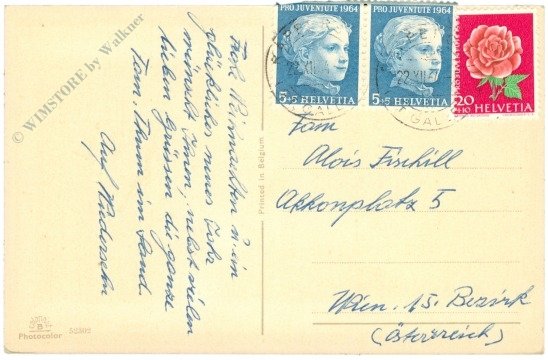 PRO JUVENTUTE 1964
5+5 HELVETIA
PRO JUVENTUTE 1964
5+5 HELVETIA
PRO JUVENTUTE 1964
20+10 HELVETIA
22.XII.
GAL
© WIMSTORE by Walkner
Frohe Weihnachten u. ein
glückliches neues Jahr
wünscht Ihnen, nebst vielen
lieben Grüssen die ganze
Fam. Thum im Sand.
Auf Wiedersehn
Printed in Belgium
Fam
Alois Fischill
Akkonplatz 5
Wien. 15. Bezirk
(Österreich)
Photocolor
52302